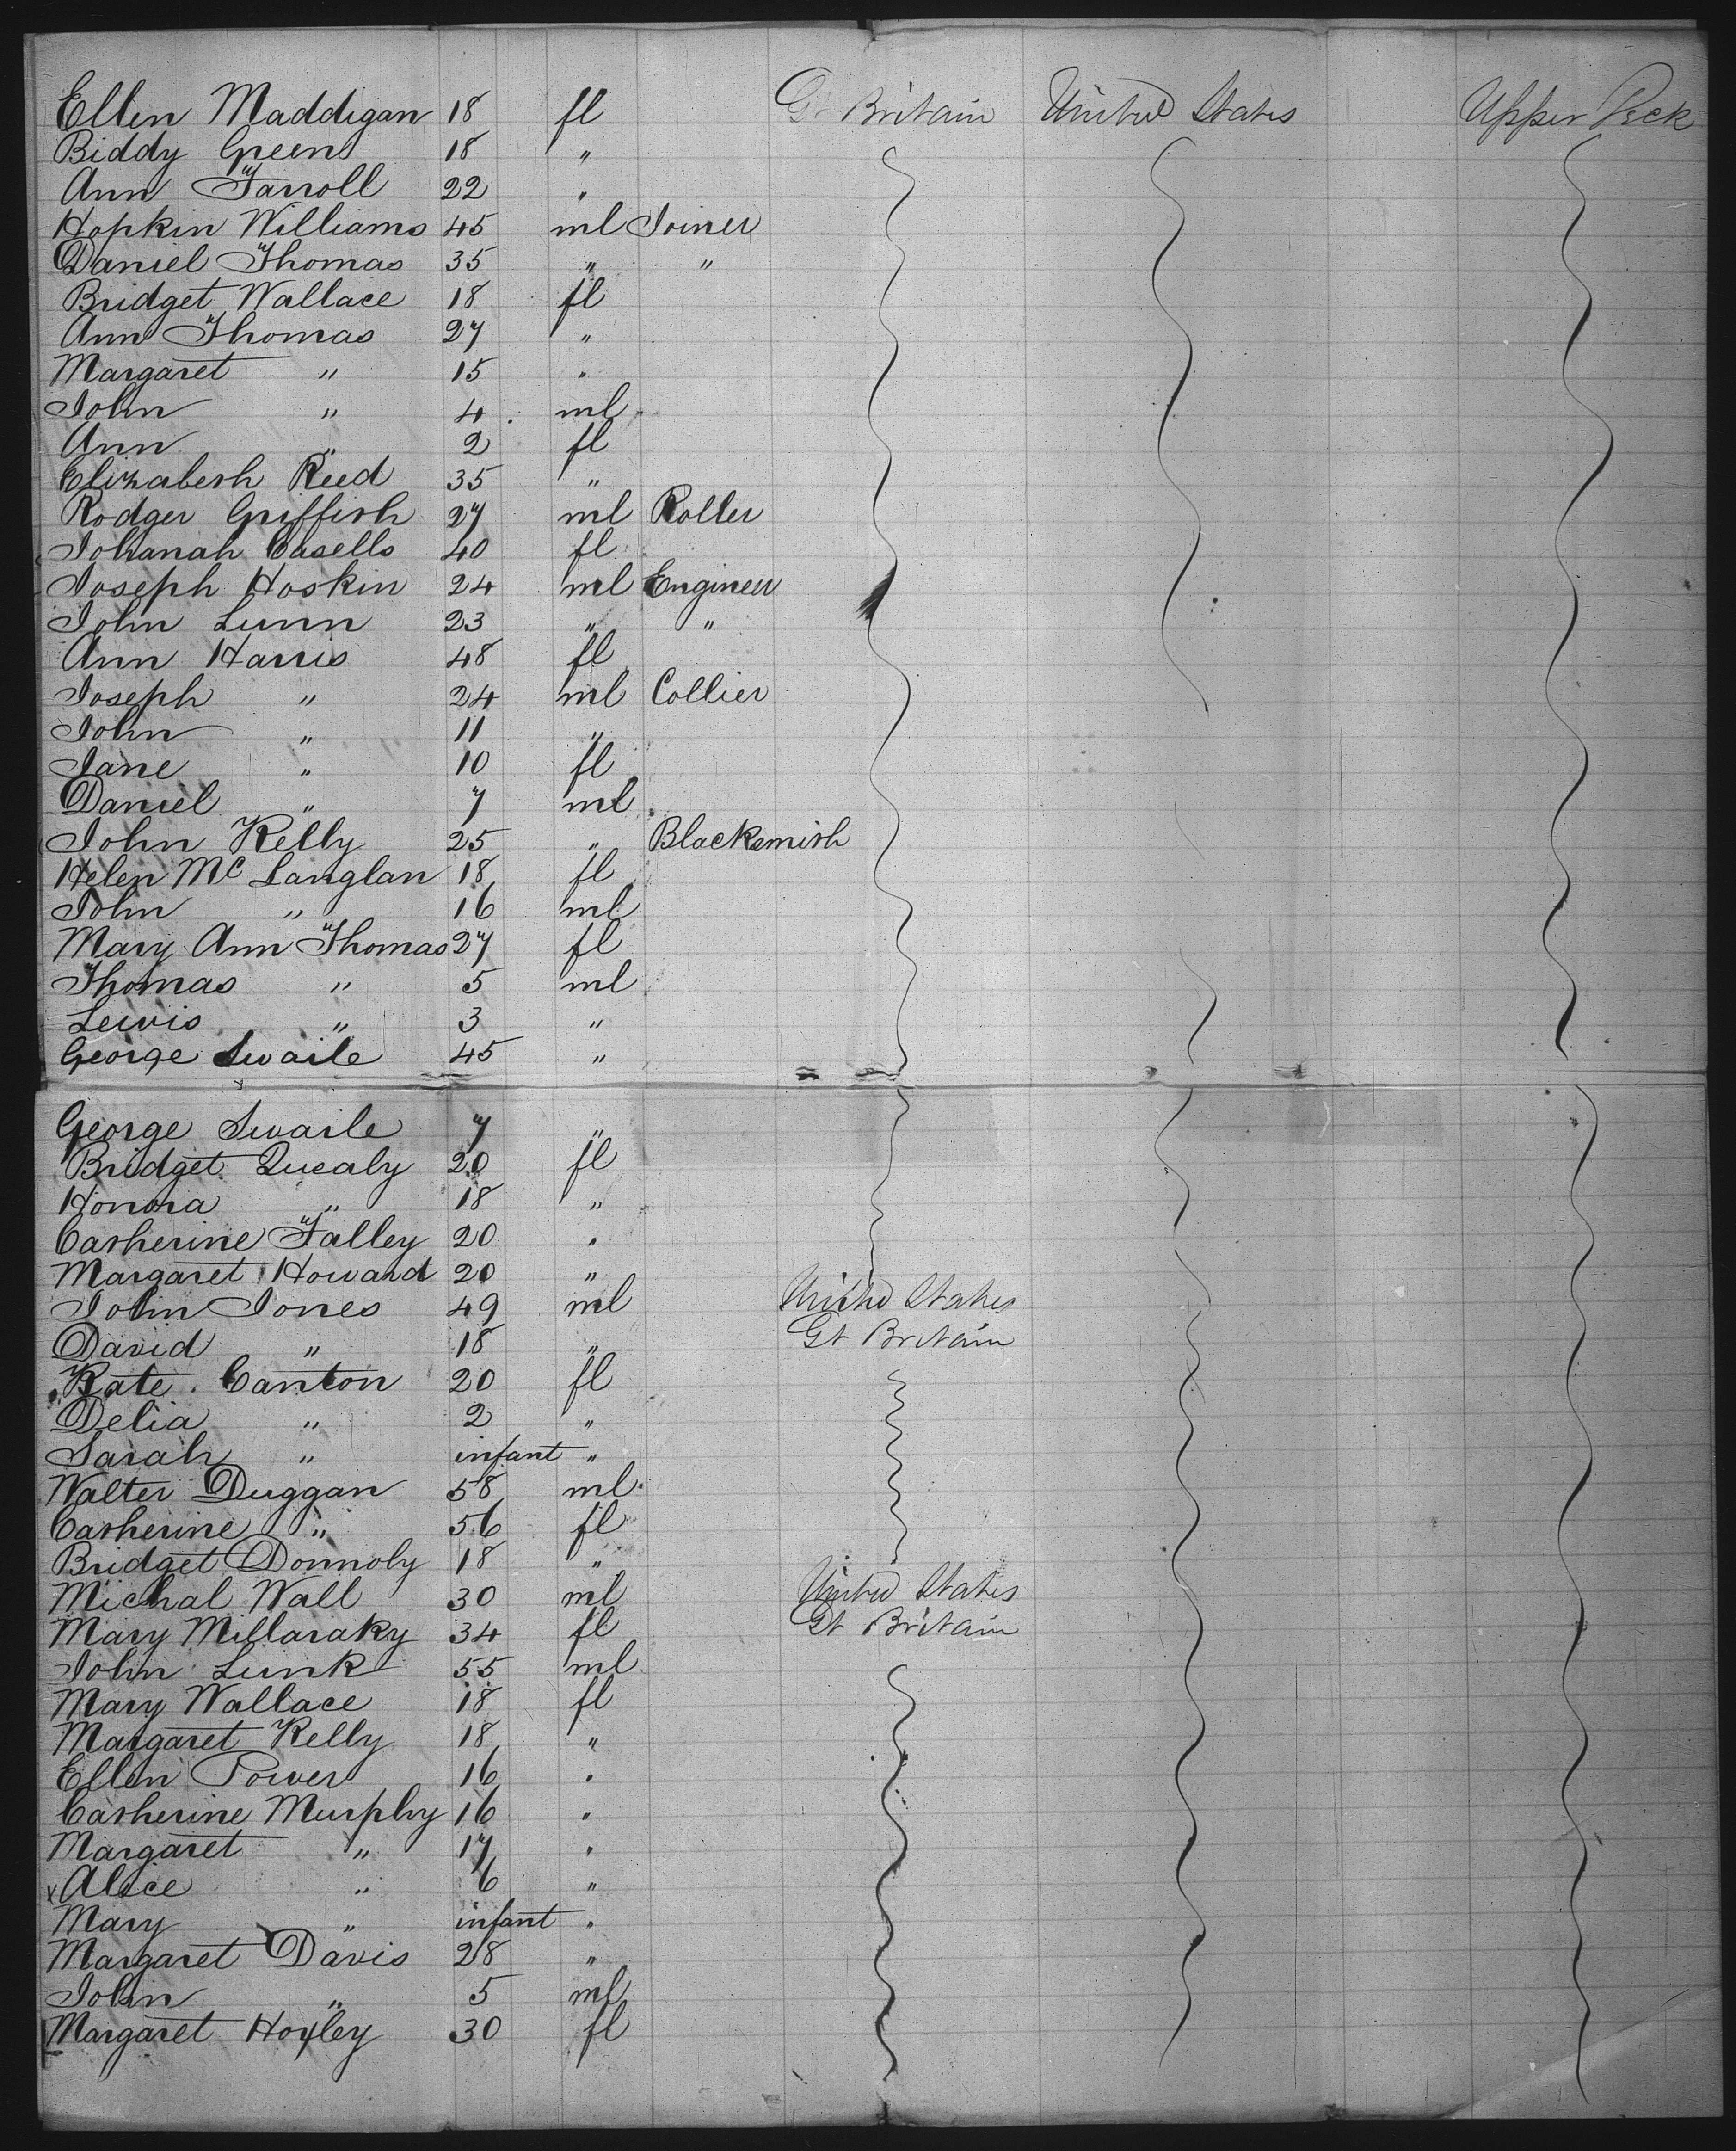 Ellen Maddigan 18 fl Gt Britain United States Upper Deck
Biddy Green 18 fl "
Ann Farroll 22 "
Hopkin Williams 45 ml Joiner
Daniel Thomas 35 " "
Bridget Wallace 18 fl
Ann Thomas 27 "
Margaret " 15 "
John " 4 ml
Ann " 2 fl
Elizabeth Reed 35 "
Rodger Griffith 27 ml Roller
Johanah Casells 40 fl
Joseph Hoskin 24 ml Engineer
John Lunn 23 " "
Ann Harris 48 fl
Joseph " 24 ml Collier
John " 11 "
Jane " 10 fl
Daniel " 7 ml
John Kelly 25 " Blacksmith
Helen Mc Langlan 18 fl
John " 16 ml
Mary Ann Thomas 27 fl
Thomas " 5 ml
Lewis " 3 "
George Swaile 45 "
George Swaile 7 "
Bridget Quealy 20 fl
Honora " 18 "
Catherine Talley 20 "
Margaret Howard 20 "
John Jones 49 ml United States
David " 18 " Gt Britain
Kate Canton 20 fl
Delia " 2 "
Sarah " infant "
Walter Duggan 58 ml
Catherine " 56 fl
Bridget Donnoly 18 "
Michal Wall 30 ml United States
Mary Millaraky 34 fl Gt Britain
John Lunk 55 ml
Mary Wallace 18 fl
Margaret Kelly 18 "
Ellen Power 16 "
Catherine Murphy 16 "
Margaret " 17 "
x Alice " 6 "
Mary " infant "
Margaret Davis 28 "
John " 5 ml
Margaret Hoyley 30 fl